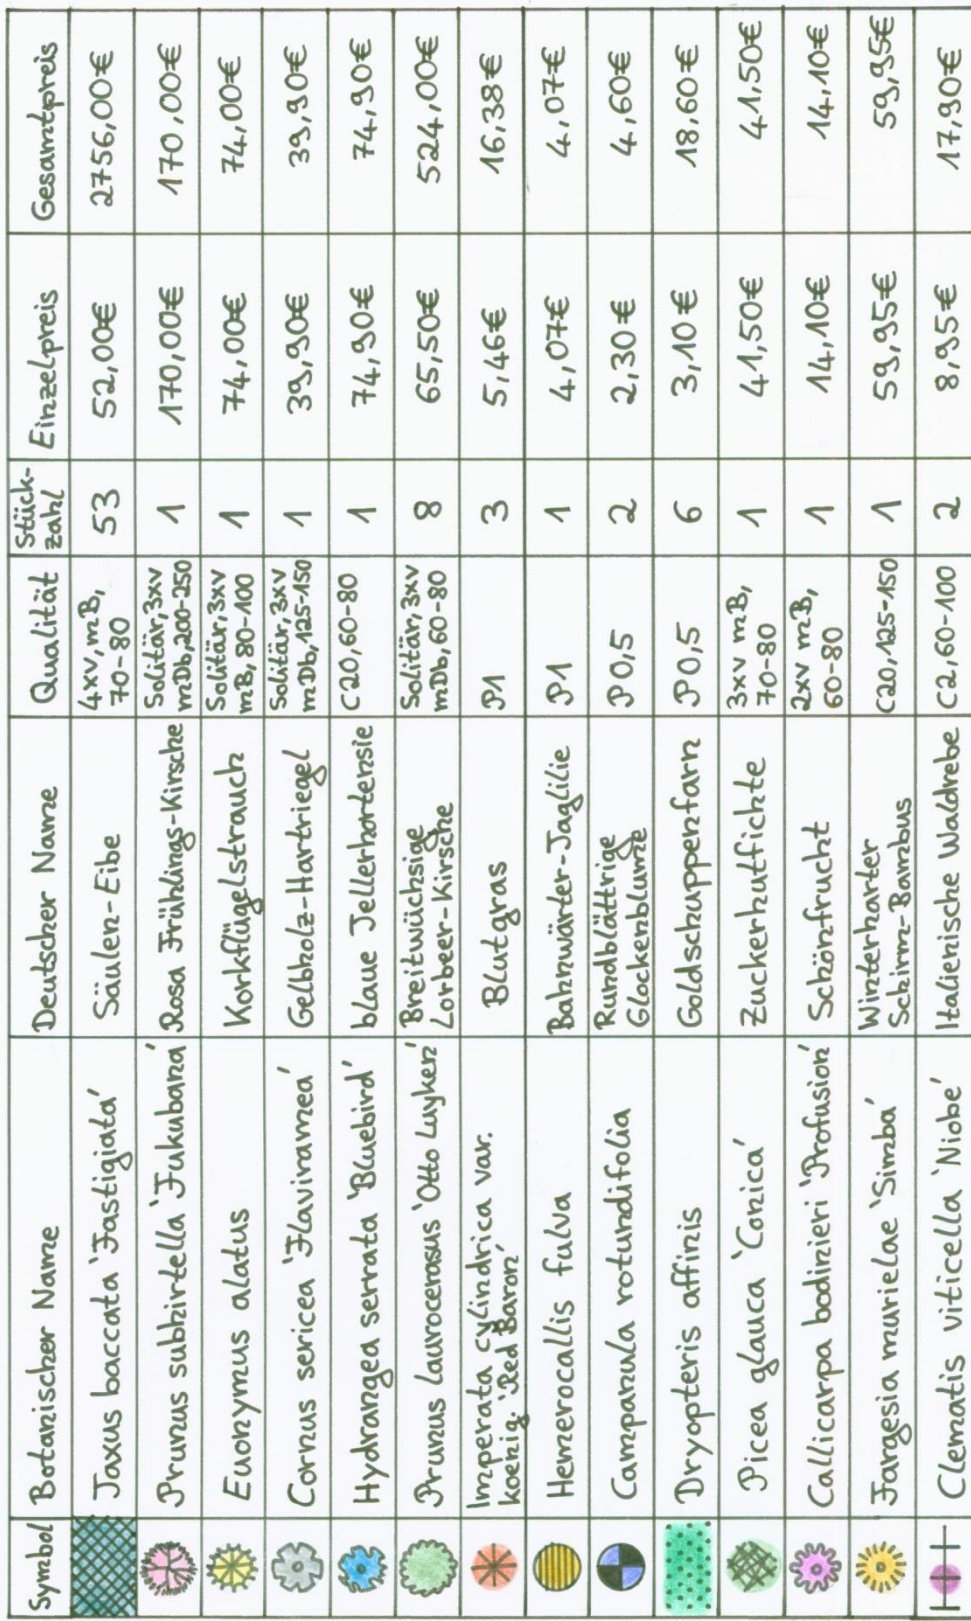 Symbol Botanischer Name Deutscher Name Qualität Stück-zahl Einzelpreis Gesamtpreis
Taxus baccata 'Fastigiata' Säulen-Eibe 4xv, mB, 70-80 53 52,00€ 2756,00€
Prunus subhirtella 'Fukubana' Rosa Frühlings-Kirsche Solitär, 3xv mDb, 200-250 1 170,00€ 170,00€
Euonymus alatus Korkflügelstrauch Solitär, 3xv mB, 80-100 1 74,00€ 74,00€
Cornus sericea 'Flaviramea' Gelbholz-Hartriegel Solitär, 3xv mDb, 125-150 1 39,90€ 39,90€
Hydrangea serrata 'Bluebird' blaue Tellerhortensie C20, 60-80 1 74,90€ 74,90€
Prunus laurocerasus 'Otto Luyken' Breitwüchsige Lorbeer-Kirsche Solitär, 3xv mDb, 60-80 8 65,50€ 524,00€
Imperata cylindrica var. koenig. 'Red Baron' Blutgras P1 3 5,46€ 16,38€
Hemerocallis fulva Bahnwärter-Taglilie P1 1 4,07€ 4,07€
Campanula rotundifolia Rundblättrige Glockenblume P0,5 2 2,30€ 4,60€
Dryopteris affinis Goldschuppenfarn P0,5 6 3,10€ 18,60€
Picea glauca 'Conica' Zuckerhutfichte 3xv mB, 70-80 1 41,50€ 41,50€
Callicarpa bodinieri 'Profusion' Schönfrucht 2xv mB, 60-80 1 14,10€ 14,10€
Fargesia murielae 'Simba' Winterharter Schirm-Bambus C20, 125-150 1 59,95€ 59,95€
Clematis viticella 'Niobe' Italienische Waldrebe C2, 60-100 2 8,95€ 17,90€